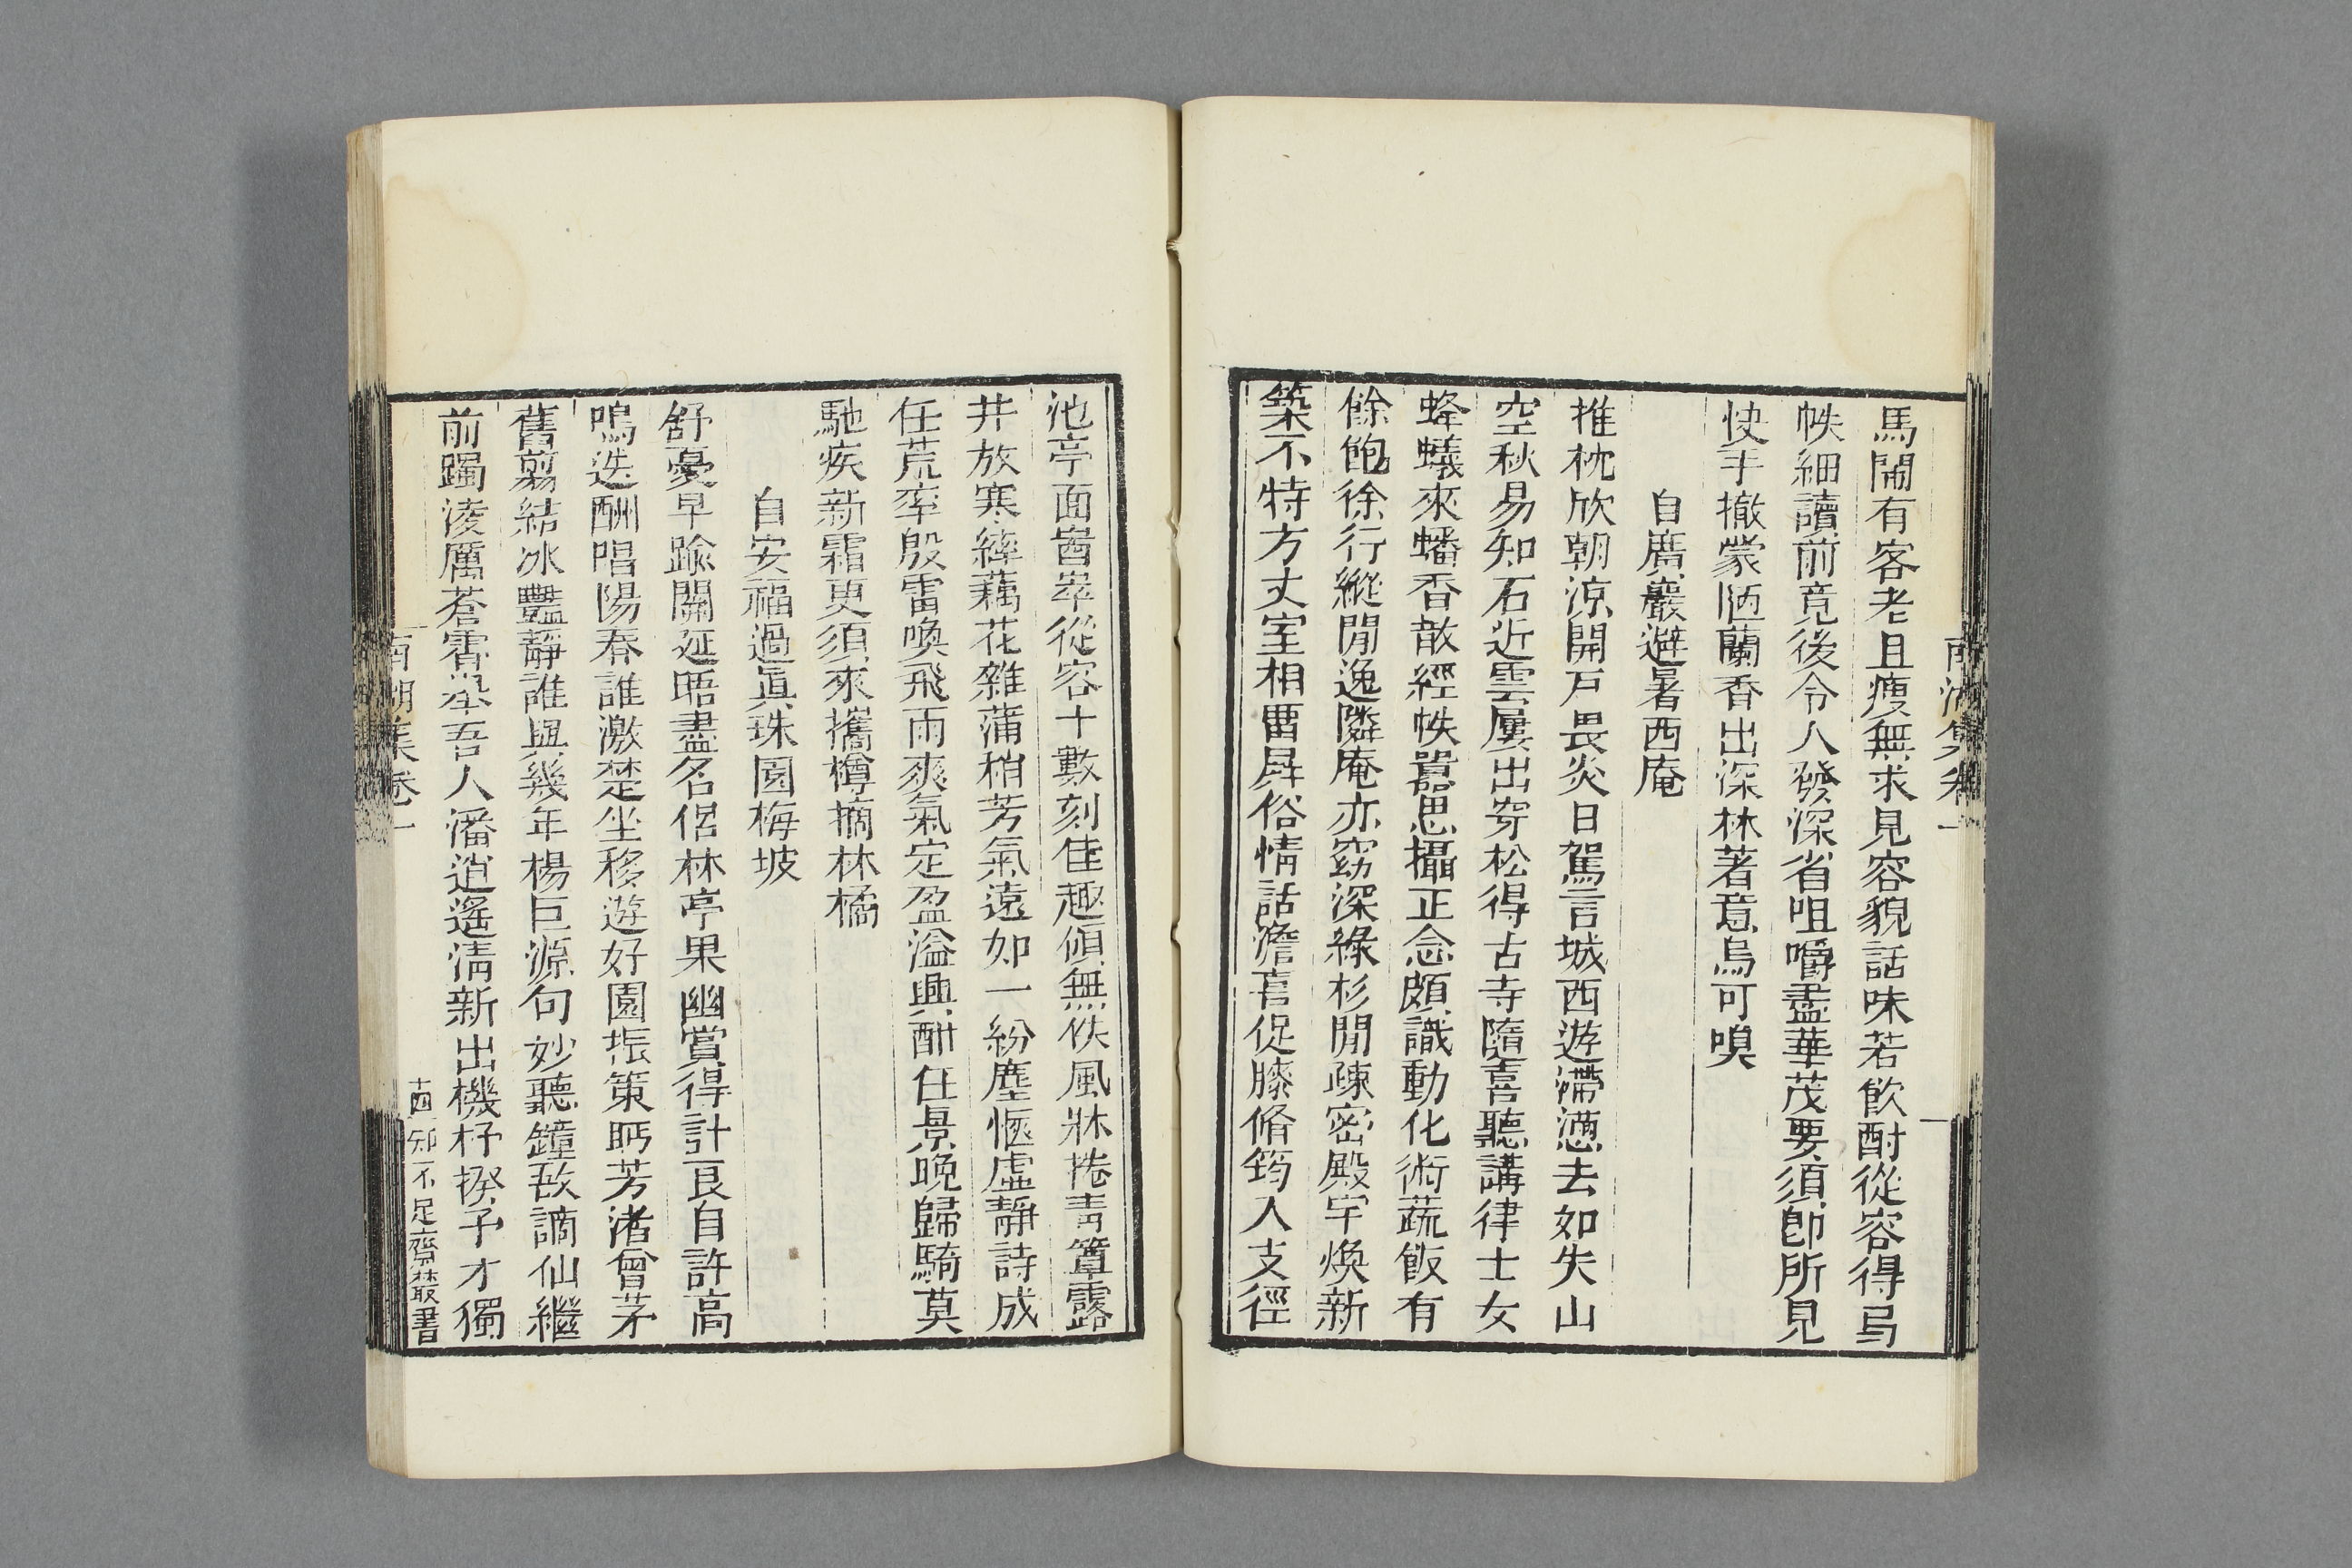 馬鬧有客老且瘦無求見容貌話味若飲酎從容得烏
帙細讀前竟後令人發深省咀嚼盡華茂要須卽所見
快手撤蒙陋蘭香出深林著意烏可嗅
自廣嚴避暑西庵
推枕欣朝涼開戸畏炎日駕言城西遊滯懑去如失山
空秋易知石近雲屢出穿松得古寺隨喜聽講律士女
蜂蟻來蟠香散經帙囂思攝正念頗識動化術蔬飯有
餘飽徐行縱閒逸隣庵亦窈深綠杉閒疎密殿宇煥新
築不特方丈室相畱屛俗情話澹喜促膝脩筠入支徑
池亭面崷崒從容十數刻佳趣傾無佚風牀捲青簟露
井放寒繂藕花雜蒲稍芳氣遠如一紛塵愜虛靜詩成
任荒率殷雷喚飛雨爽氣定盈溢興酣任景晚歸騎莫
馳疾新霜更須來攜樽摘林橘
自安福過眞珠園梅坡
舒憂早踰關延晤盡名侶林亭果幽賞得計良自許高
鳴迭酬唱陽春誰激楚坐移遊好園振策眄芳渚曾茅
舊翦結冰豔靜誰與幾年楊巨源句妙聽鐘敔謫仙繼
前躅淩厲蒼雲舉吾人潘逍遙淸新出機杼揆予才獨
南湖集卷一
十四
知不足齋叢書